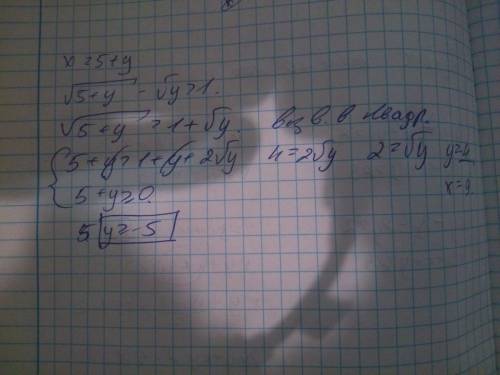 x = 5+y
√5+y - √y = 1.
√5+y = 1+√y. возв. в квадр.
{ 5+y = 1+y+2√y 4=2√y 2=√y y=4
5+y≥0. x=9
5 y≥-5